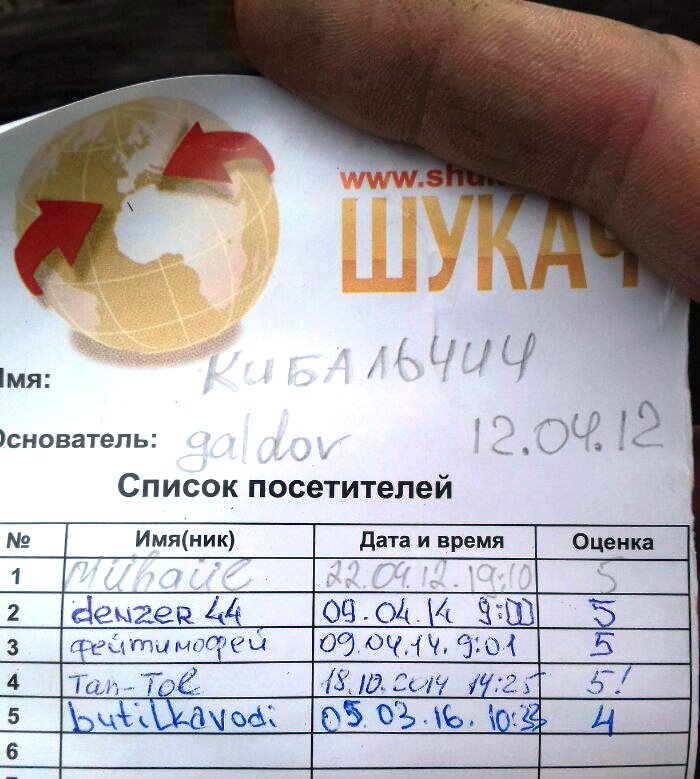 www.shu
ШУКАЧ
Имя: КИБАЛЬЧИЧ
Основатель: galdor 12.04.12
Список посетителей
№ Имя(ник) Дата и время Оценка
1 Mühaül 22.04.12. 19:10 5
2 denzer 44 09.04.14 9:00 5
3 фейтимофей 09.04.14. 9:01 5
4 Tan-Tol 18.10.2014 14:25 5!
5 butilkavodi 05.03.16. 10:33 4
6